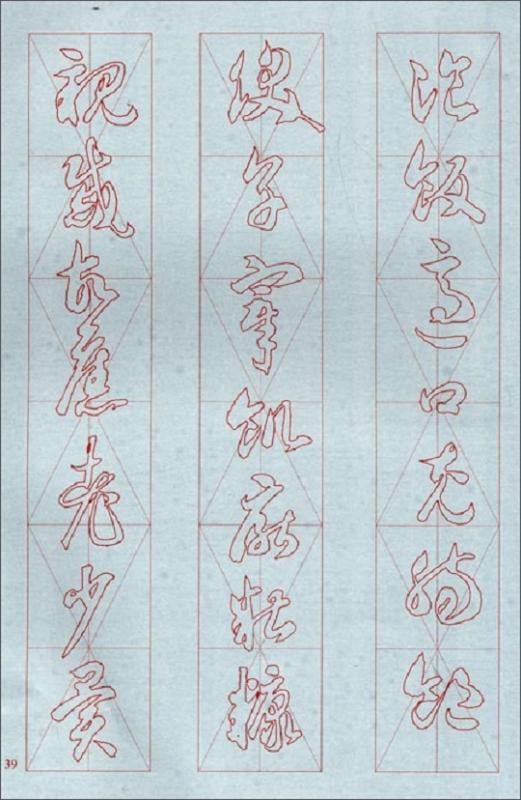 飡飯適口充腸飽
飫享宰飢厭糟糠
親戚故舊老少異
39